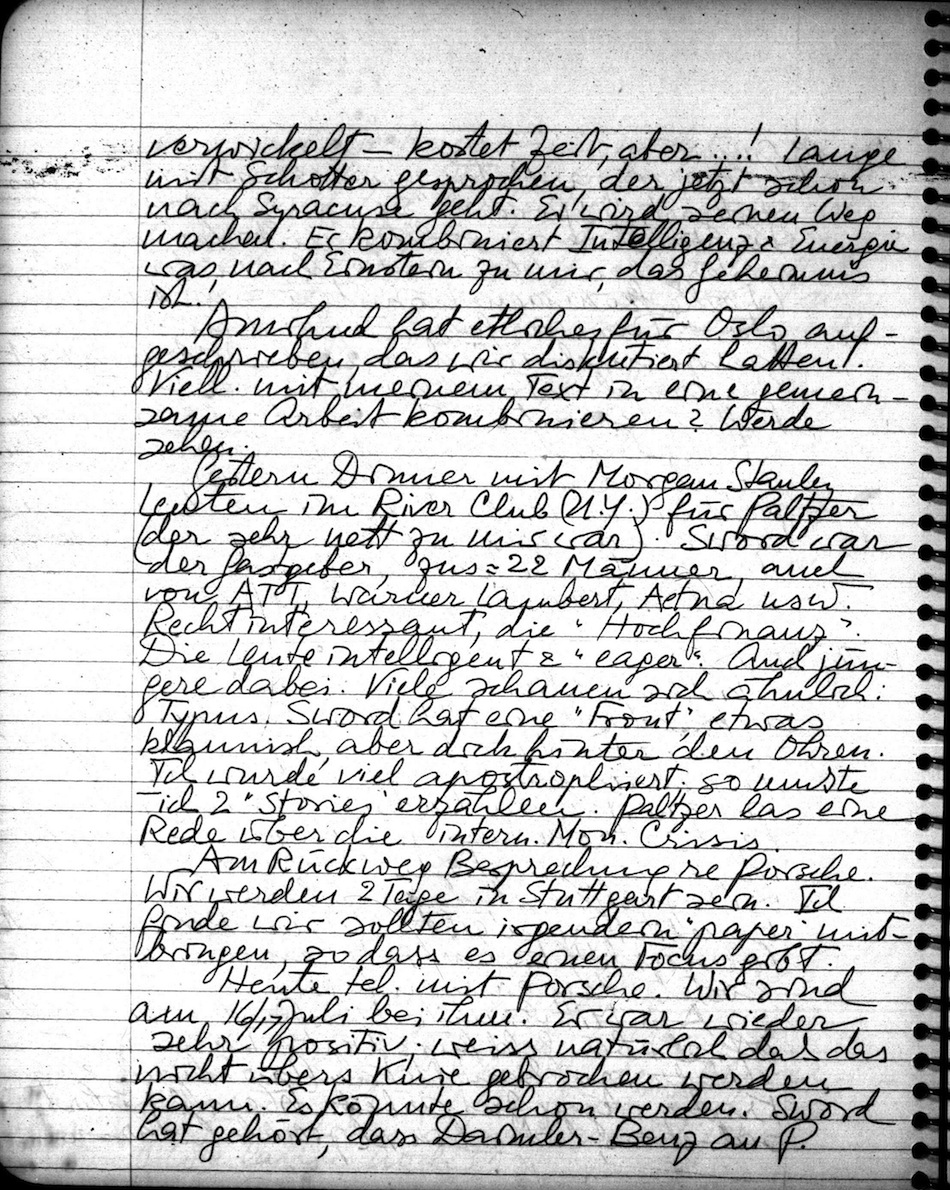 verwickelt – kostet Zeit, aber ....! Lange
mit Schotter gesprochen, der jetzt schon
nach Syracuse geht. Er wird seinen Weg
machen. Er kombiniert Intelligenz & Energie
was, nach Einstein zu mir, das Geheimnis
ist.
hat etliches für Oslo auf-
geschrieben, das wir diskutiert hatten.
Viell. mit meinem Text in eine gemein-
same Arbeit kombinieren? Werde
sehen.
Gestern Dinner mit Morgan Stanley
Leuten im River Club (N.Y.) für Paltzer
(der sehr nett zu mir war). Sword war
der Gastgeber, zus = 22 Männer, auch
von ATT, Warner Lambert, Aetna usw.
Recht interessant, die "Hochfinanz".
Die Leute intelligent & "eager". Auch jün-
gere dabei. Viele schauen sich ähnlich:
Typus. Sword hat eine "Front" etwas
aber dick hinter den Ohren.
Ich wurde viel apostrophiert, so musste
ich 2 "Stories" erzählen. Paltzer las eine
Rede über die intern. Mon. Crisis.
Am Rückweg Besprechung re Porsche.
Wir werden 2 Tage in Stuttgart sein. Ich
finde wir sollten irgendein "paper" mit-
bringen, so dass es einen Focus gibt.
Heute tel. mit Porsche. Wir sind
am 16/17 Juli bei ihm. Er war wieder
sehr positiv, weiss natürlich das das
nicht übers Knie gebrochen werden
kann. Es könnte schon werden. Sword
hat gehört, dass Daimler-Benz an P.